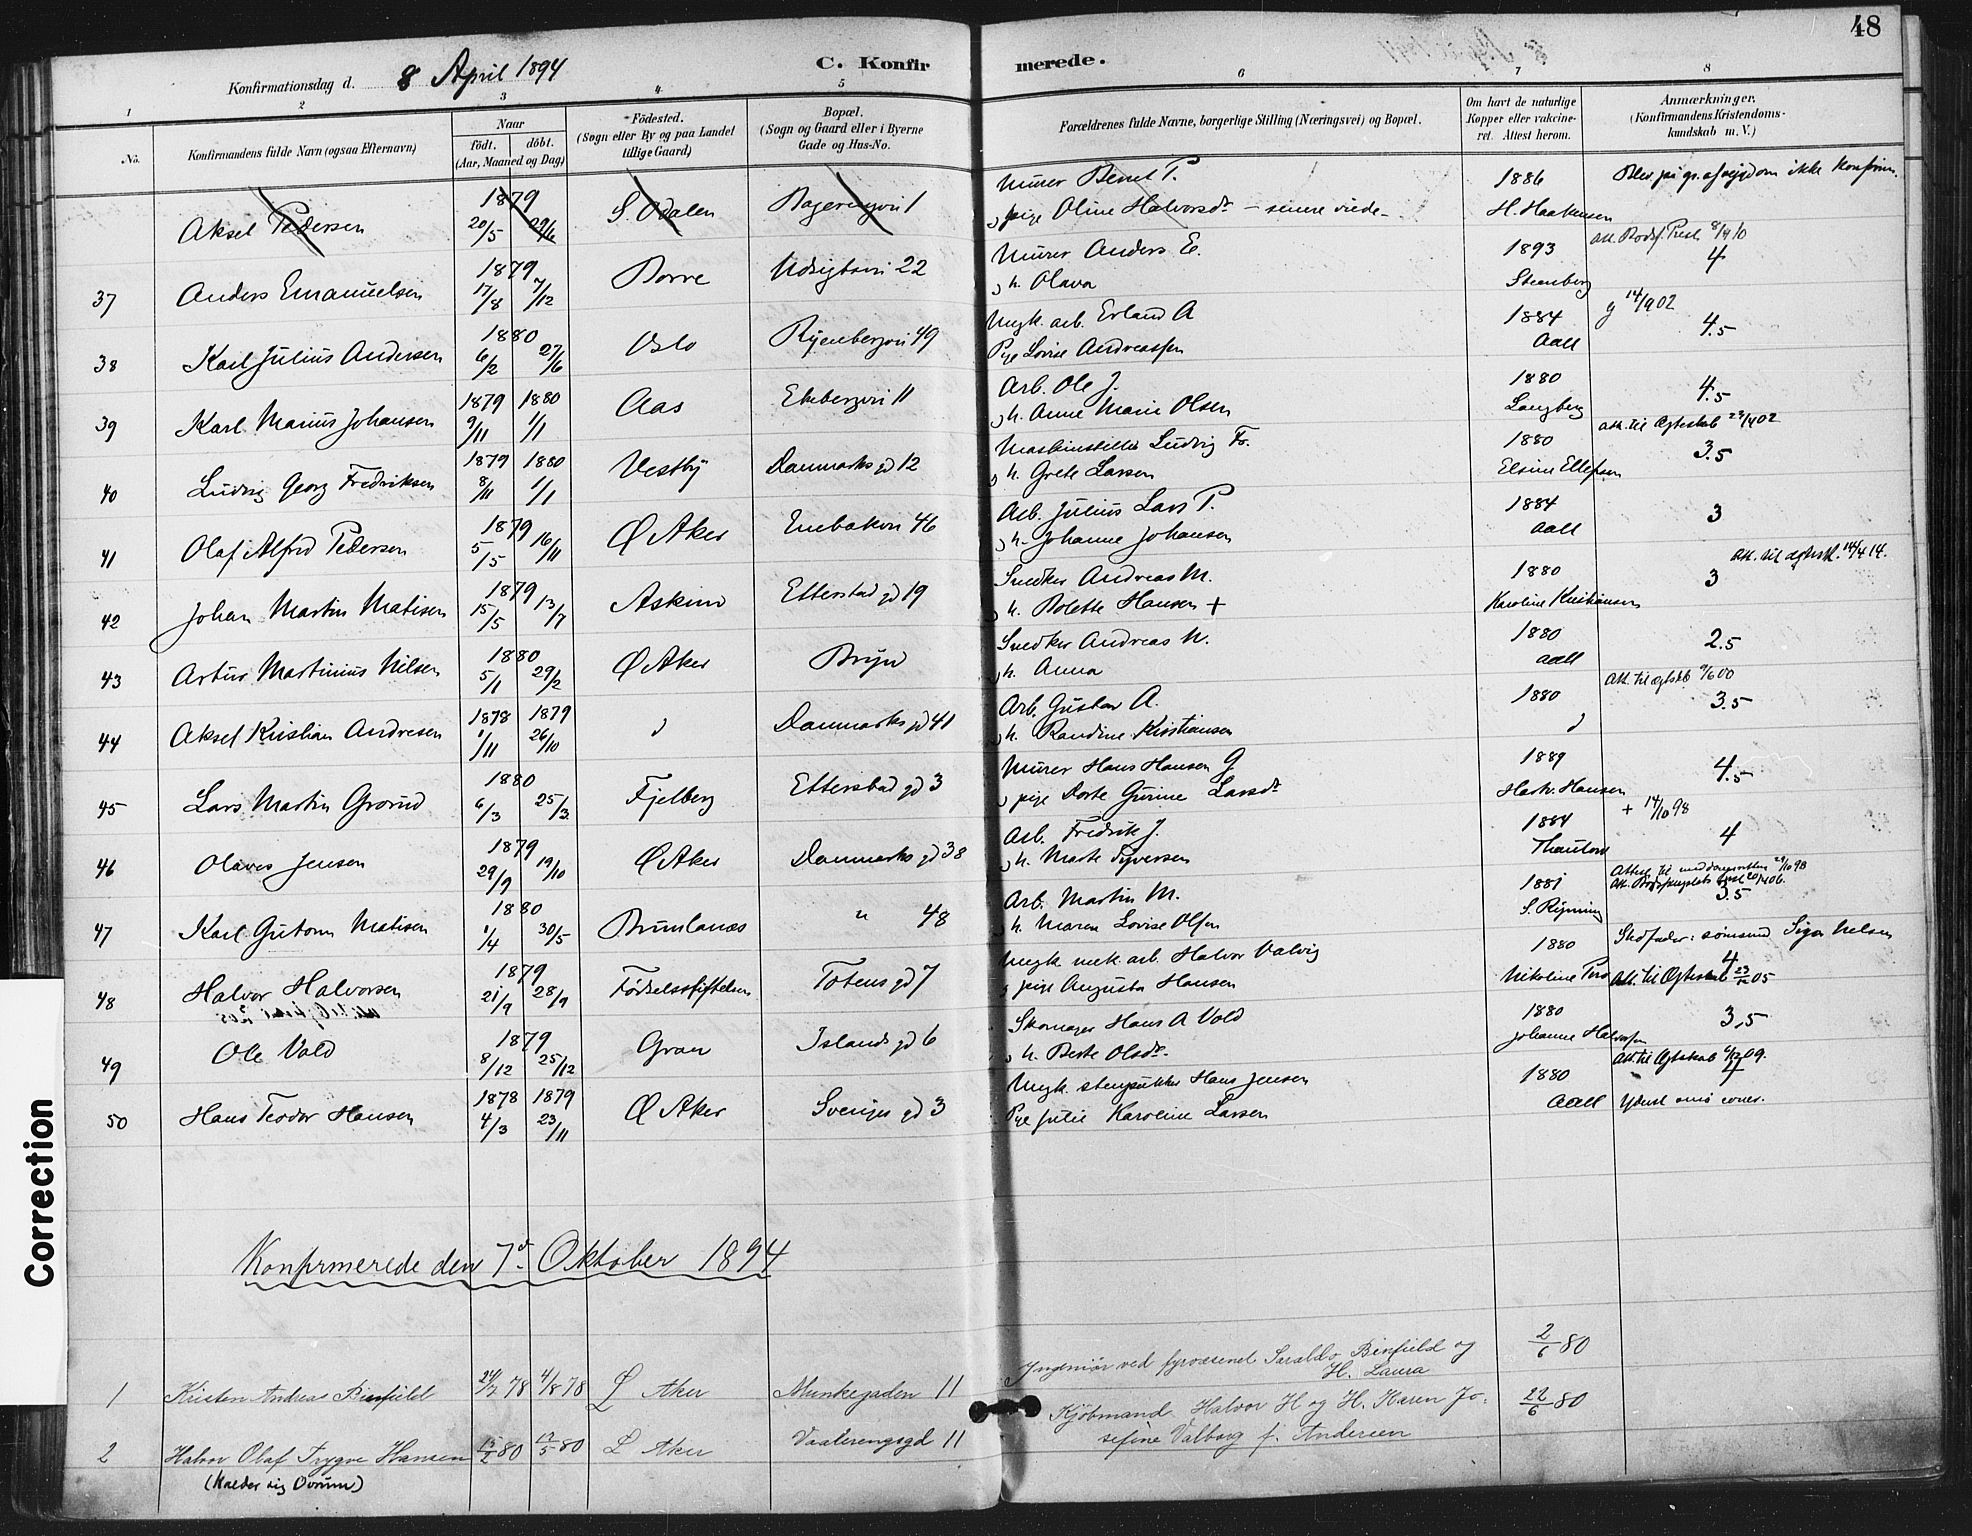 48
Konfirmationsdag d. 8 April 1894
C. Konfirmerede.
1 2 3 4 5 6 7 8
No. Konfirmandens fulde Navn (ogsaa Efternavn) Naar født. døbt. (Aar, Maaned og Dag) Fødested. (Sogn eller By og paa Landet tillige Gaard) Bopæl. (Sogn og Gaard eller i Byerne Gade og Hus-No. Forældrenes fulde Navne, borgerlige Stilling (Næringsvei) og Bopæl. Om havt de naturlige Kopper eller vakcineret. Attest herom. Anmærkninger. (Konfirmandens Kristendomskundskab m. V.)
Aksel Pedersen 1879 20/5 29/6 S. Odalen 1 Murer Bernt P. pige Oline Halvorsdr - senere viede - 1886 H. Haakensen Blev på gr. af sygdom ikke konfirm.
37 Anders Emanuelsen 1879 17/8 7/12 Borre Udsigtsvei 22 Murer Anders E. h. Olava 1893 Steenberg att. Bodsf. Prest 8/4 10 4
38 Karl Julius Andersen 1880 6/2 27/6 Oslo Ryenbergvei 49 Ungk. arb. Erland A Pige Lovise Andreassen 1884 Aall g 14/9 02 4.5
39 Karl Marius Johansen 1879 9/11 1880 1/1 Aas Ekebergvei 11 Arb. Ole J. h. Anne Marie Olsen 1880 Langberg 4.5
40 Ludvig Georg Fredriksen 1879 8/11 1880 1/1 Vestby Danmarks gd 12 Maskinsteller Ludvig Fr. h. Grete Larsen 1880 Elsine Ellefsen att. til Ægteskab 23/4 02 3.5
41 Olaf Alfred Pedersen 1879 5/5 16/11 Ø Aker Enebakvei 46 Arb. Julius Lars P. h. Johanne Johansen 1884 Aall 3
42 Johan Martin Matisen 1879 15/5 13/7 Askim Etterstad gd 19 Snedker Andreas M. h. Bolette Hansen + 1880 Karoline Kristiansen att. til ægtesk. 14/4 14. 3
43 Artur Martinius Nilsen 1880 5/1 29/2 Ø Aker Bryn Snedker Andreas N. h. Anna 1880 Aall 2.5
44 Aksel Kristian Andresen 1878 1/11 1879 26/10 " Danmarks gd 41 Arb. Gustav A. h. Randine Kristiansen 1880 " Att. til ægtskb 9/6 00 3.5
45 Lars Martin Grorud 1880 6/3 25/3 Fjelberg Etterstad gd 3 Murer Hans Hansen G. pige Dorte Gurine Larsdr 1889 Hartv. Hansen 4.5
46 Olaves Jensen 1879 29/9 19/10 Ø Aker Danmarks gd 38 Arb. Fredrik J. h. Marte Syversen 1884 Thaulow + 14/10 98 4
47 Karl Gutorm Matisen 1880 1/4 30/5 Brunlanæs " 48 Arb. Martin M. h. Maren Lovise Olsen 1881 S. Rynning Attest til 29/10 98 3.5
48 Halvor Halvorsen 1879 21/9 28/9 Fødselsstiftelsen Totens gd 7 Ungk mek. arb. Halvor Valvig pige Augusta Hansen 1880 Nikoline Stedfader: sømand Nelsen 4 Att. til Ægteskab 05
49 Ole Vold 1879 8/12 25/12 Gran Islands gd 6 Skomager Hans A Vold h. Berte Olsdr. 1880 Johanne Halvorsen 3,5
50 Hans Teodor Hansen 1878 4/3 1879 23/11 Ø Aker Sveriges gd 3 Ungk. stenpukker Hans Jensen Pige Julie Karoline Larsen 1880 Aall Att til Ægteskab 09.
Konfirmerede den 7de Oktober 1894
1 Kristen Andreas Binfield 24/7 78 4/8 78 Ø Aker Munkegaden 11 Ingeniør ved fyrvæsenet Binfield og H. Laura 2/6 80
2 Halvor Olaf Trygve Hansen 15/2 80 17/5 80 Ø Aker Vaalerengsgd 11 Kjøbmand Halvor H og H. Karen Josefine Valborg f. Andersen 22/6 80
(kalder sig Dorum)
Correction